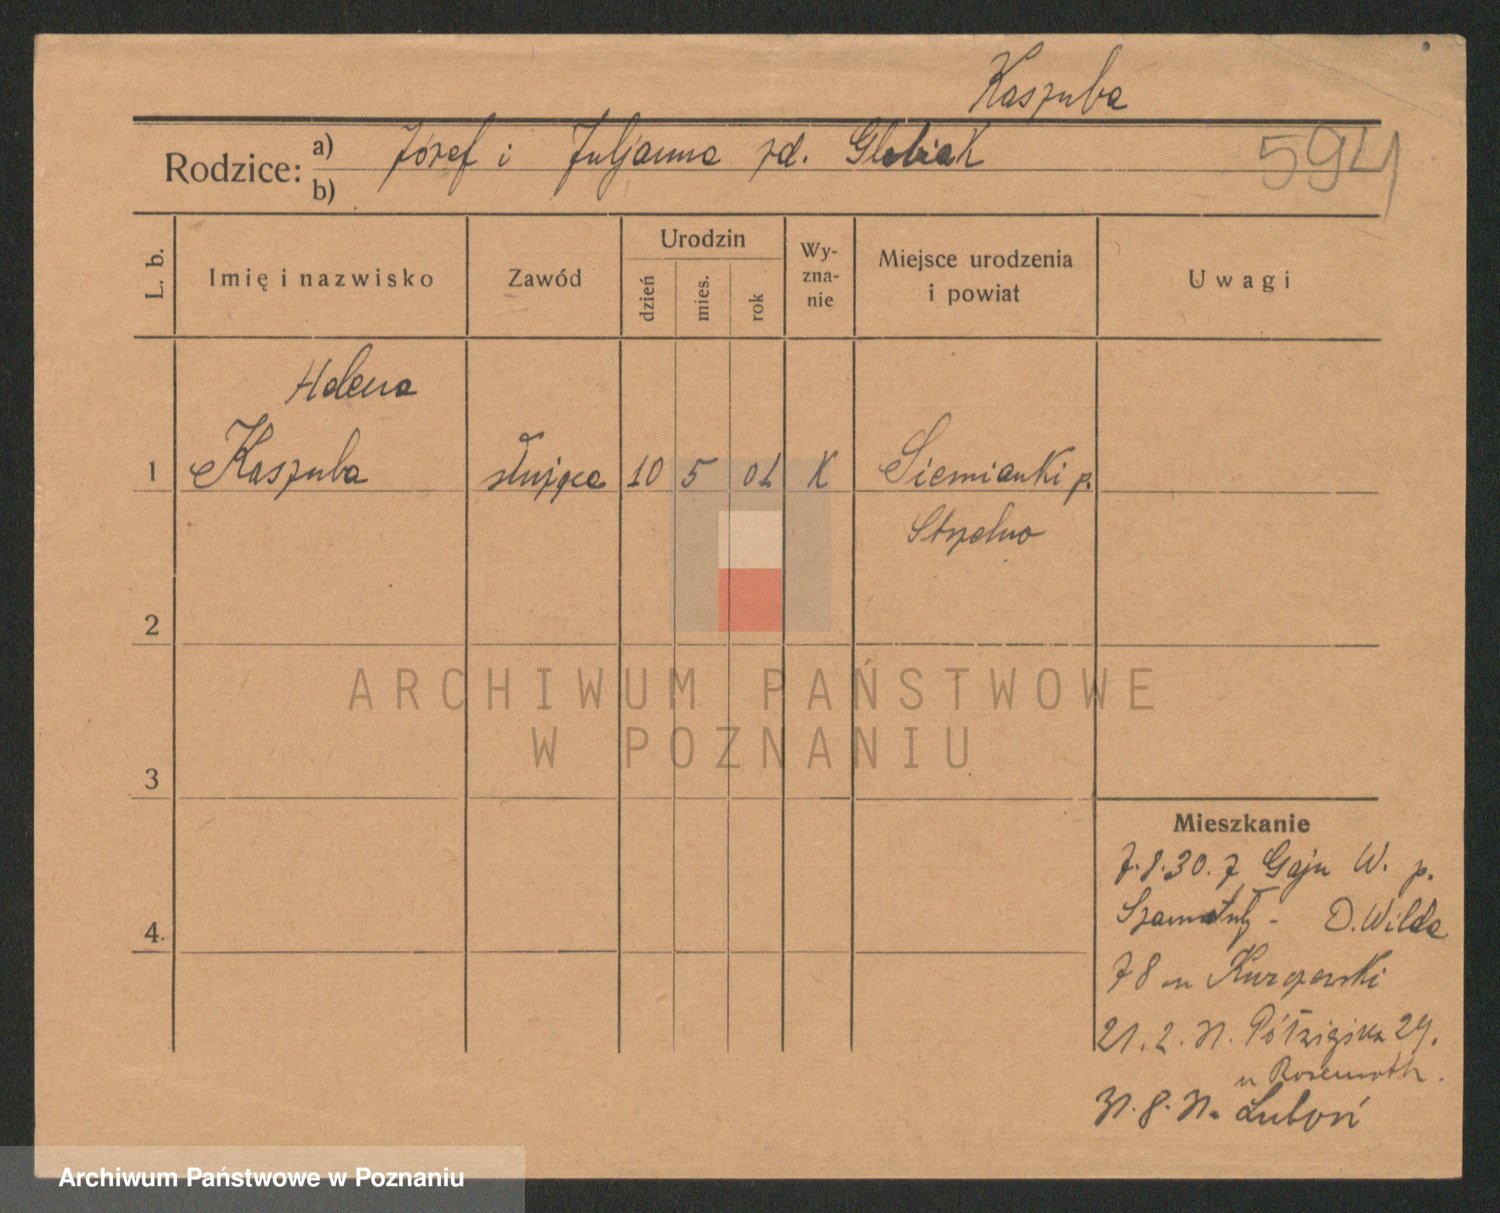 Kaszuba
Rodzice: a) Józef i Juljanna zd. Glebiak
b)
594
L. b.
Imię i nazwisko
Zawód
Urodzin
dzień
mies.
rok
Wy-
zna-
nie
Miejsce urodzenia
i powiat
Uwagi
Helena
1 Kaszuba służąca 10 5 01 K Siemianki p.
Strzelno
2
3
4.
ARCHIWUM PAŃSTWOWE
W POZNANIU
Mieszkanie
7.8.30. z Gaju W. p.
Szamotuły - D. Wilda
78 u Kurczewski
21.2.31. Półwiejska 29.
u Rosenroth.
31.8.31. Luboń
Archiwum Państwowe w Poznaniu